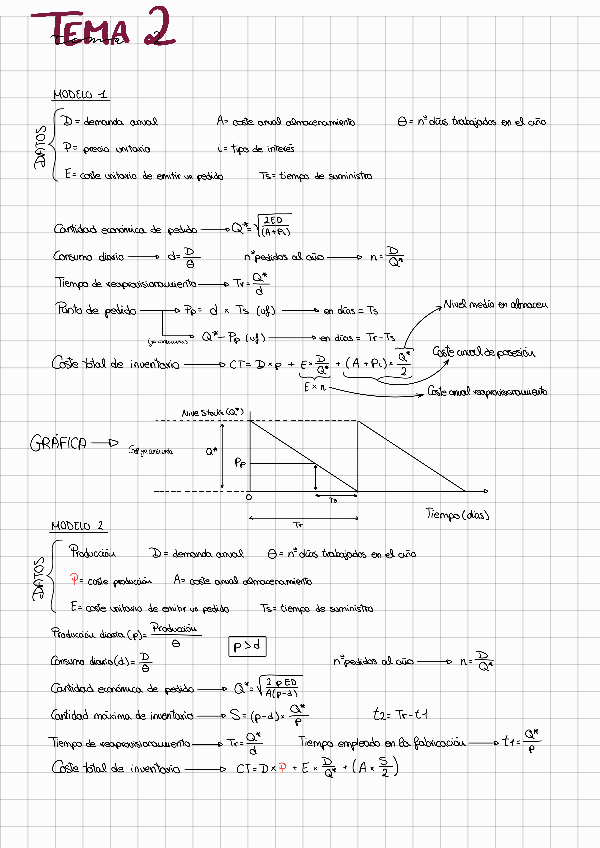 TEMA 2
MODELO 1
DATOS
D = demanda anual A = coste anual almacenamiento Θ = nº días trabajados en el año
P = precio unitario i = tipo de interés
E = coste unitario de emitir un pedido Ts = tiempo de suministro
Cantidad económica de pedido → Q* = √(2ED/(A+Pi))
Consumo diario → d = D/Θ nº pedidos al año → n = D/Q*
Tiempo de reaprovisionamiento → Tr = Q*/d
Punto de pedido → Pp = d × Ts (uf) → en días = Ts
Q* - Pp (uf) → en días = Tr - Ts
Nivel medio en almacen
Coste total de inventario → CT = D × p + E × D/Q* + (A + Pi) × Q*/2
Coste anual de posesión
E × n
Coste anual reaprovisionamiento
GRÁFICA →
Nivel Stock (Q*)
Q*
Pp
0
Ts
Tr
Tiempo (días)
MODELO 2
DATOS
Producción D = demanda anual Θ = nº días trabajados en el año
P = coste producción A = coste anual almacenamiento
E = coste unitario de emitir un pedido Ts = tiempo de suministro
Producción diaria (p) = Producción/Θ
p > d
Consumo diario (d) = D/Θ nº pedidos al año → n = D/Q*
Cantidad económica de pedido → Q* = √(2pED/A(p-d))
Cantidad máxima de inventario → S = (p-d) × Q*/p t2 = Tr - t1
Tiempo de reaprovisionamiento → Tr = Q*/d Tiempo empleado en la fabricación → t1 = Q*/p
Coste total de inventario → CT = D × P + E × D/Q* + (A × S/2)